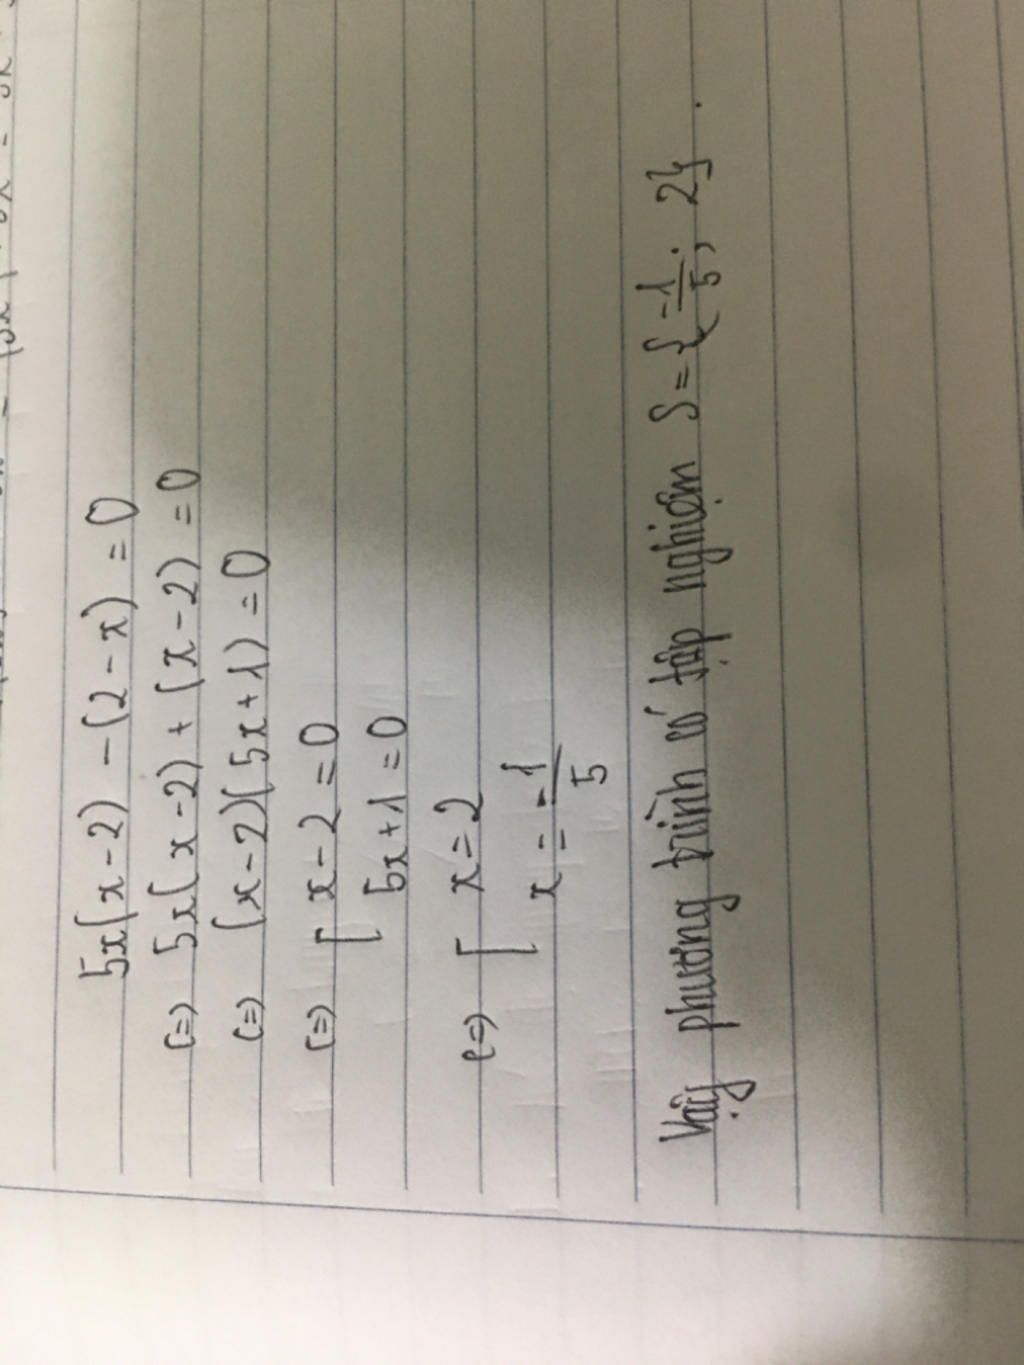 5x(x-2) - (2-x) = 0
(=) 5x(x-2) + (x-2) = 0
(=) (x-2)(5x+1) = 0
(=) [ x-2 = 0
5x+1 = 0
(=) [ x = 2
x = -1/5
Vậy phương trình có tập nghiệm S = {-1/5; 2}.